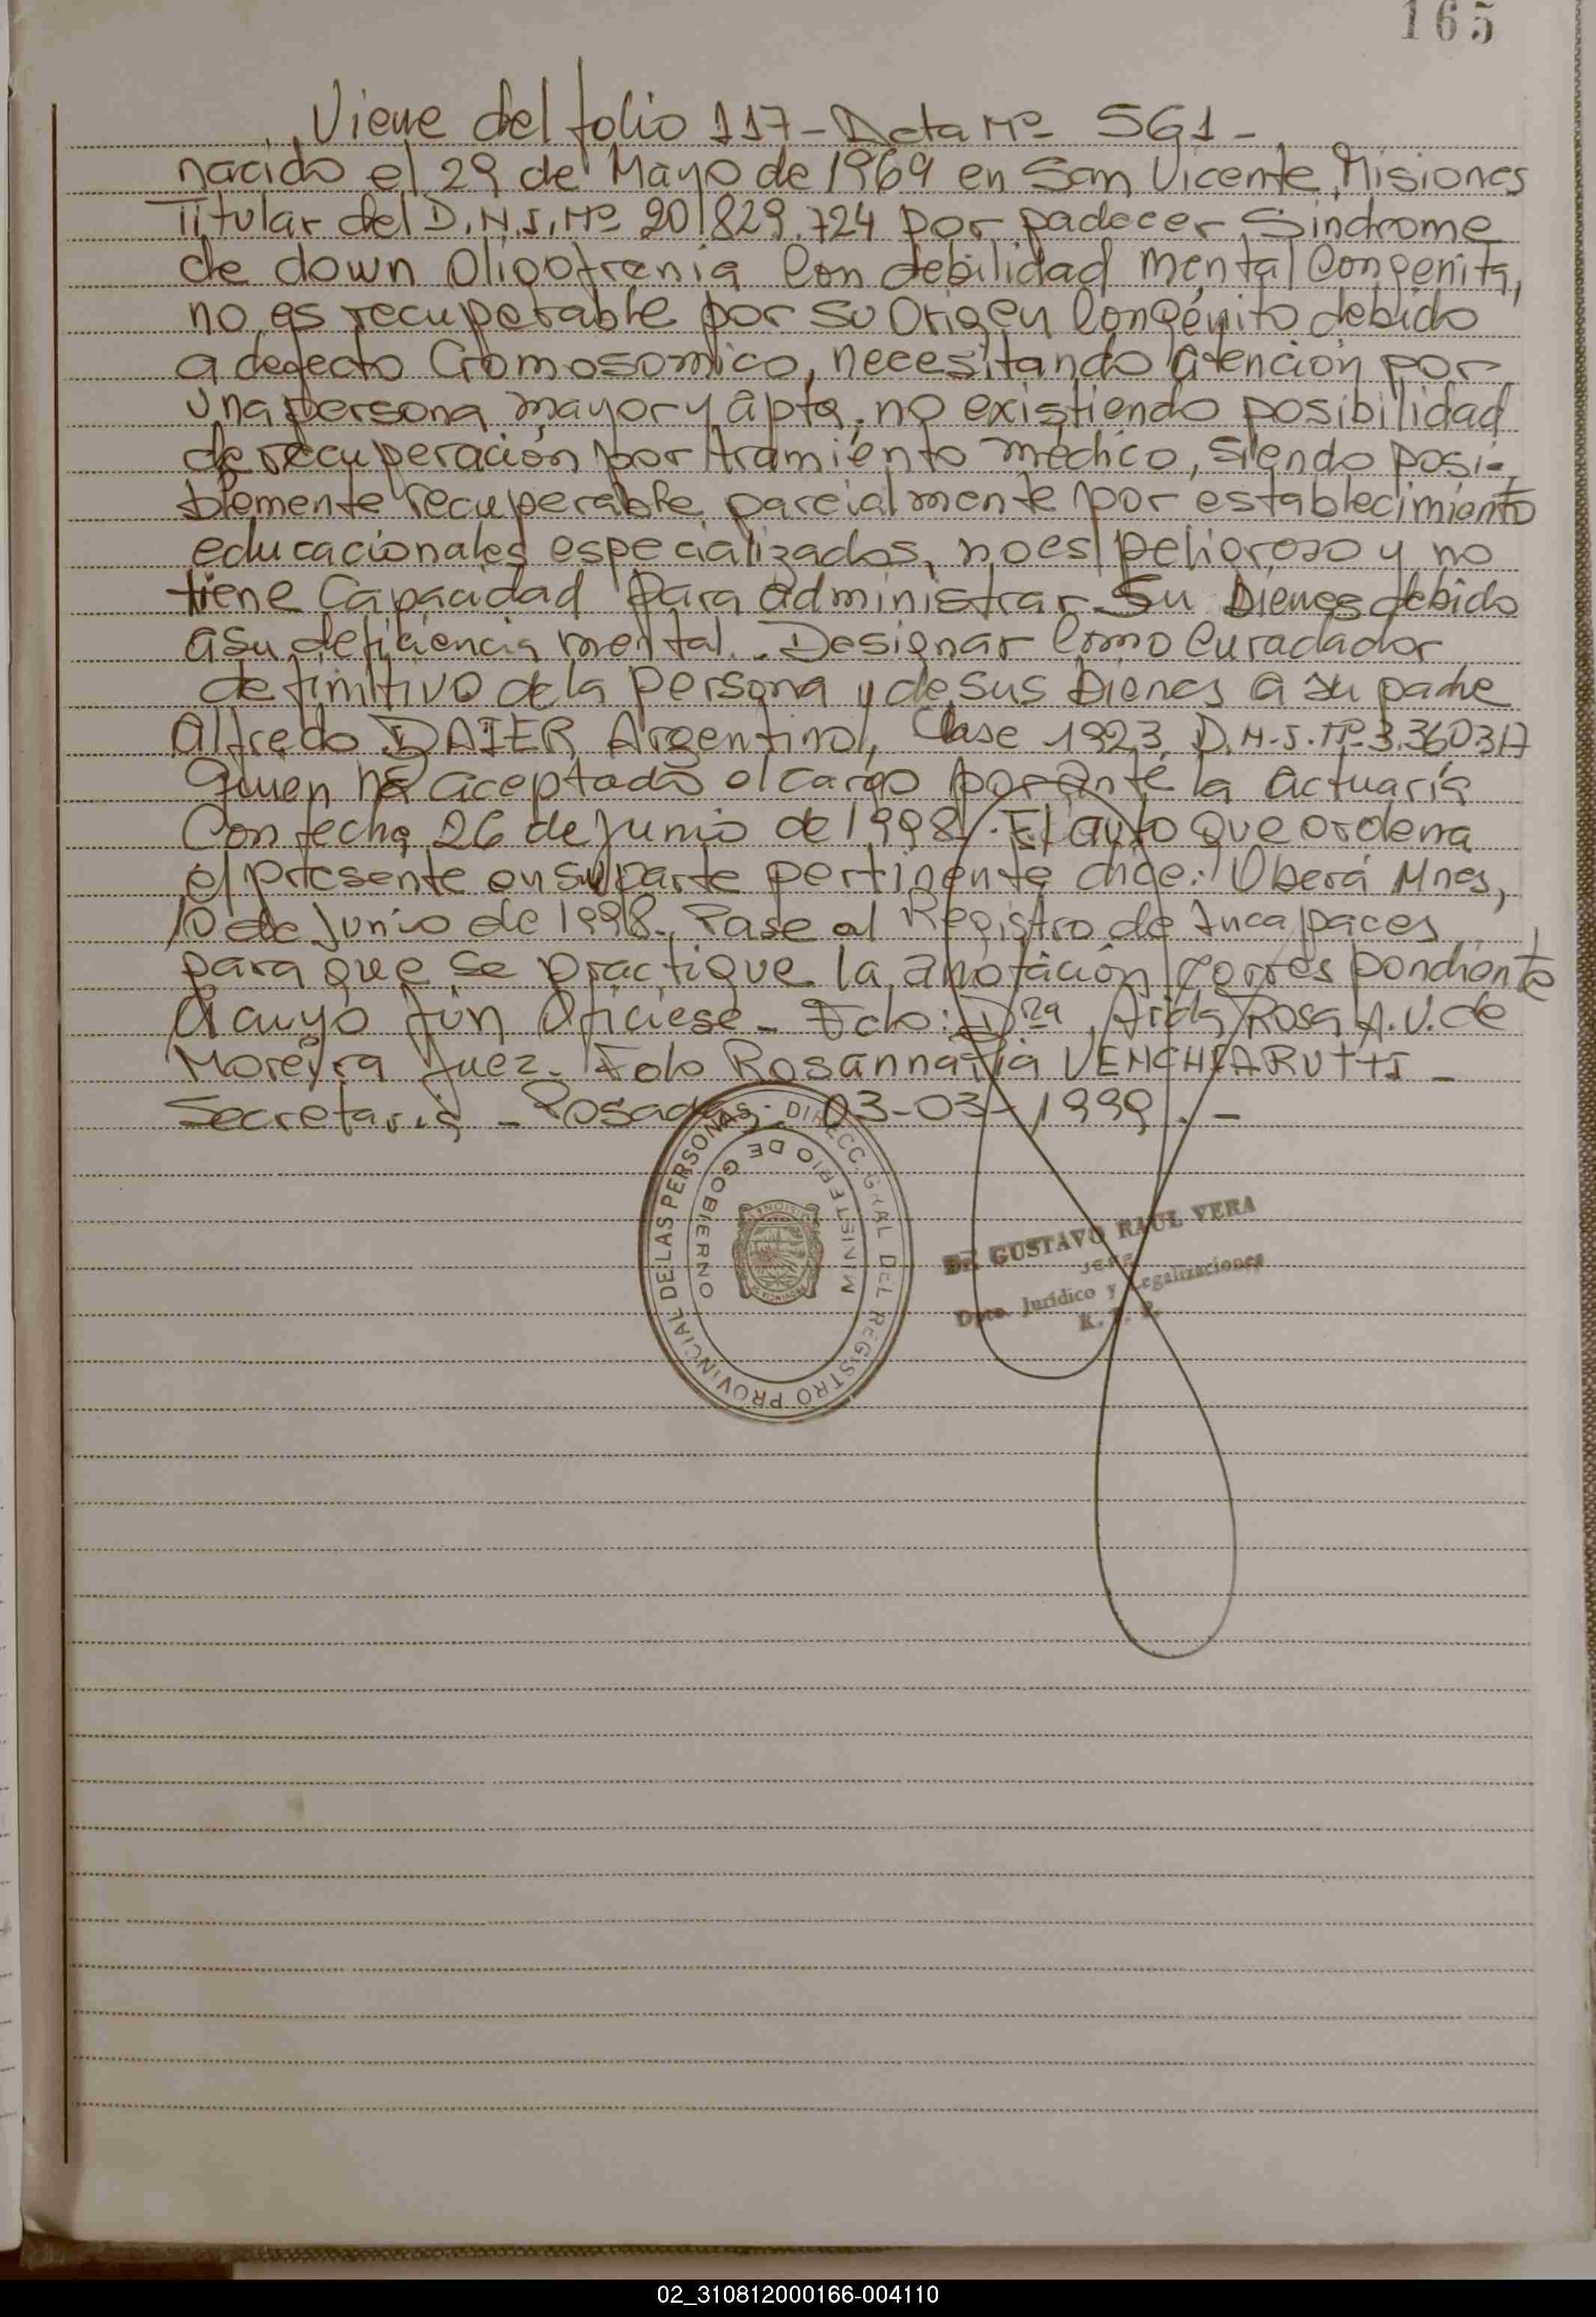 165
Viene del folio 117 - Acta Nº 561 -
nacido el 29 de Mayo de 1969 en San Vicente, Misiones
Titular del D.N.I. Nº 20.829.724 por padecer Sindrome
de down Oligofrenia Con debilidad mental Congenita,
no es recuperable por su Origen Congénito debido
a defecto Cromosomico, necesitando atención por
una persona mayor y apta, no existiendo posibilidad
de recuperación por tramiento médico, siendo posi-
blemente recuperable parcialmente por establecimiento
educacionales especializados, no es peligroso y no
tiene Capacidad para administrar Su bienes debido
a su deficiencia mental. Designar Como Curadador
definitivo de la persona y de sus bienes a su padre
Alfredo DAIER Argentino, Clase 1923 D.N.I. Nº 3.360.317
quien ha aceptado el cargo por ante la actuaria
Con fecha 26 de junio de 1998. El auto que ordena
el presente en su parte pertinente dice: Oberá Mnes,
10 de Junio de 1998. Pase al Registro de Incapaces
para que se practique la anotación correspondiente
A cuyo fin Ofíciese - Fdo: Dra. Aida Rosa A.V. de
Moreyra Juez. Fdo Rosanna Pia VENCHIARUTTI -
Secretaria - Posadas 03-03-1999. -
DIRECC. GRAL DEL REGISTRO PROVINCIAL DE LAS PERSONAS
MINISTERIO DE GOBIERNO
PROVINCIA DE MISIONES
Dr. GUSTAVO RAUL VERA
JEFE
Dpto. Jurídico y Legalizaciones
R. P. P.
02_310812000166-004110